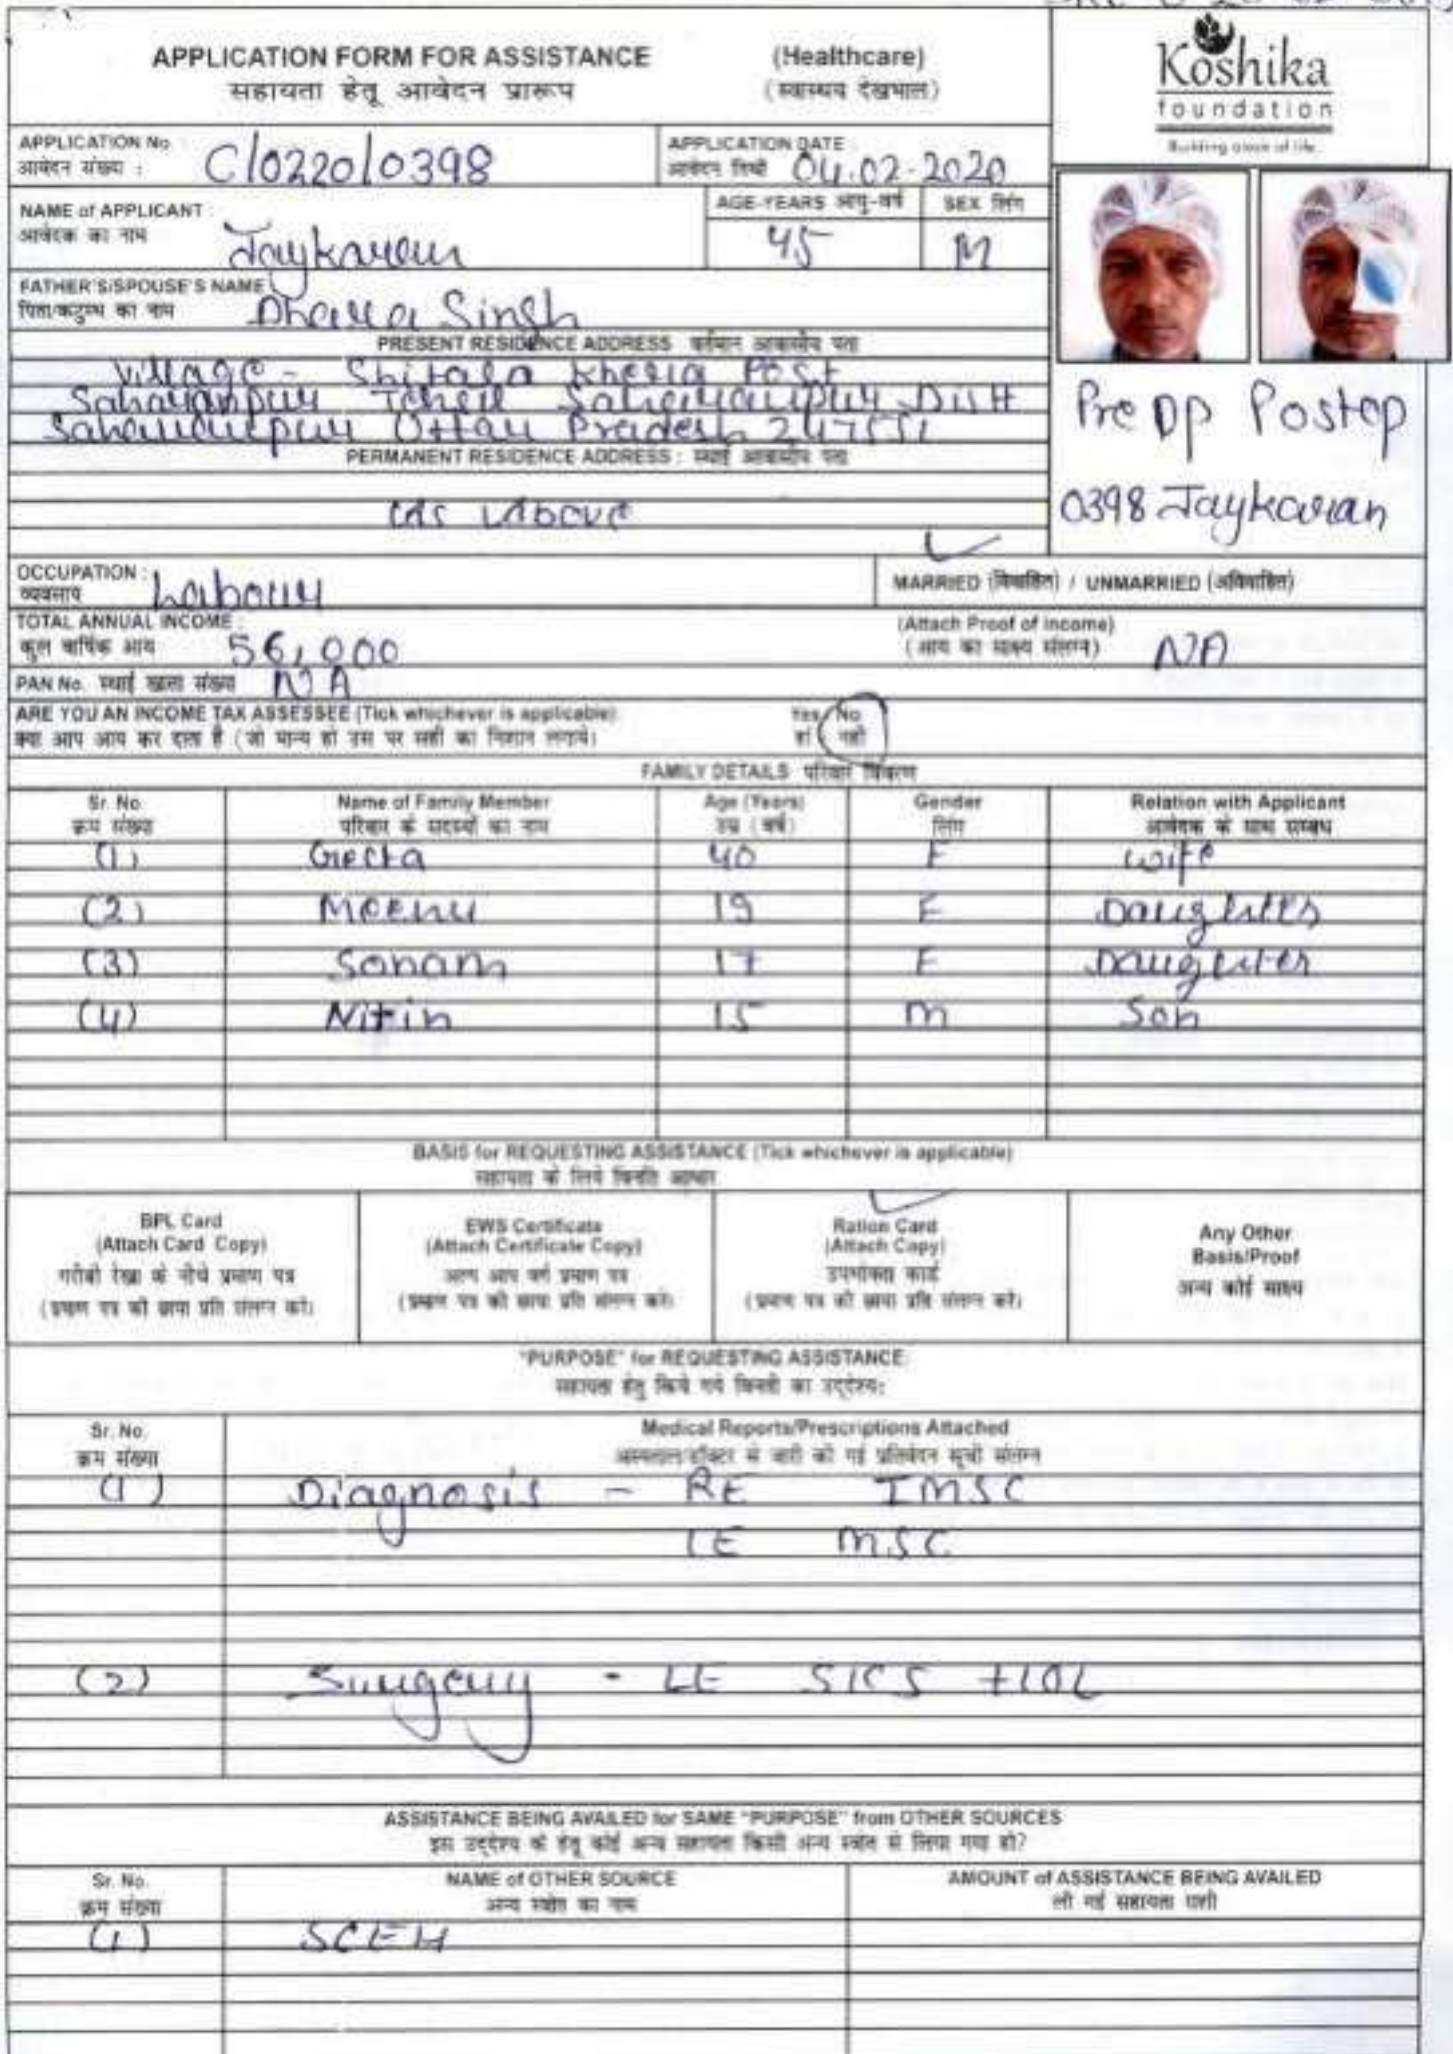 APPLICATION FORM FOR ASSISTANCE (Healthcare)
सहायता हेतू आवेदन प्रारूप (स्वास्थय देखभाल)
Koshika
foundation
APPLICATION No :
आवेदन संख्या : C/0220/0398
APPLICATION DATE :
आवेदन तिथी 04.02.2020
NAME of APPLICANT :
आवेदक का नाम Jaykaran
AGE-YEARS आयु-वर्ष 45
SEX लिंग M
FATHER'S/SPOUSE'S NAME
पिता/कटुम्ब का नाम Dhara Singh
PRESENT RESIDENCE ADDRESS वर्तमान आवासीय पता
Village - Shitala Kheria Post
Saharanpur Tehsil Saharanpur Distt
Saharanpur Uttar Pradesh 247551
PERMANENT RESIDENCE ADDRESS : स्थाई आवासीय पता
as Above
Pre Op Postop
0398 Jaykaran
OCCUPATION :
व्यवसाय Labour
MARRIED (विवाहित) / UNMARRIED (अविवाहित)
TOTAL ANNUAL INCOME :
कुल वार्षिक आय 56,000
(Attach Proof of income)
(आय का साक्ष्य संलग्न) NA
PAN No. स्थाई खाता संख्या NA
ARE YOU AN INCOME TAX ASSESSEE (Tick whichever is applicable): Yes / No
क्या आप आय कर दाता है (जो मान्य हो उस पर सही का निशान लगाये) हां / नही
FAMILY DETAILS परिवार विवरण
Sr. No. Name of Family Member Age (Years) Gender Relation with Applicant
क्रम संख्या परिवार के सदस्यों का नाम उम्र (वर्ष) लिंग आवेदक के साथ सम्बंध
(1) Geeta 40 F wife
(2) Meenu 19 F Daughter
(3) Sonam 17 F Daughter
(4) Nitin 15 M Son
BASIS for REQUESTING ASSISTANCE (Tick whichever is applicable)
सहायता के लिये विनति आधार
BPL Card
(Attach Card Copy)
गरीबी रेखा के नीचे प्रमाण पत्र
(प्रमाण पत्र की छाया प्रति संलग्न करे)
EWS Certificate
(Attach Certificate Copy)
अल्प आय वर्ग प्रमाण पत्र
(प्रमाण पत्र की छाया प्रति संलग्न करे)
Ration Card
(Attach Copy)
उपभोक्ता कार्ड
(प्रमाण पत्र की छाया प्रति संलग्न करे)
Any Other
Basis/Proof
अन्य कोई साक्ष्य
"PURPOSE" for REQUESTING ASSISTANCE:
सहायता हेतु किये गये विनती का उद्देश्य:
Sr. No. Medical Reports/Prescriptions Attached
क्रम संख्या अस्पताल/डॉक्टर से जारी की गई प्रतिवेदन सूची संलग्न
(1) Diagnosis - RE IMSC
LE MSC
(2) Surgery - LE SICS + IOL
ASSISTANCE BEING AVAILED for SAME "PURPOSE" from OTHER SOURCES
इस उद्देश्य के हेतु कोई अन्य सहायता किसी अन्य स्त्रोत से लिया गया हो?
Sr. No. NAME of OTHER SOURCE AMOUNT of ASSISTANCE BEING AVAILED
क्रम संख्या अन्य स्त्रोत का नाम ली गई सहायता राशी
(1) SCEH